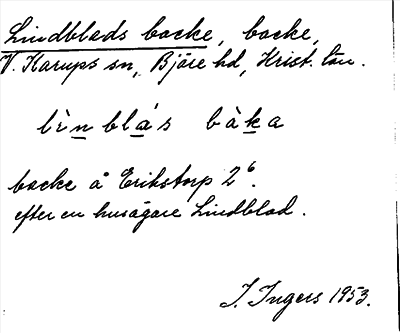 Lindblads backe, backe,
V. Karups sn, Bjäre hd, Krist. län.
lìnblá's bàka
backe å Erikstorp 2⁶.
efter en husägare Lindblad.
I. Ingers 1953.